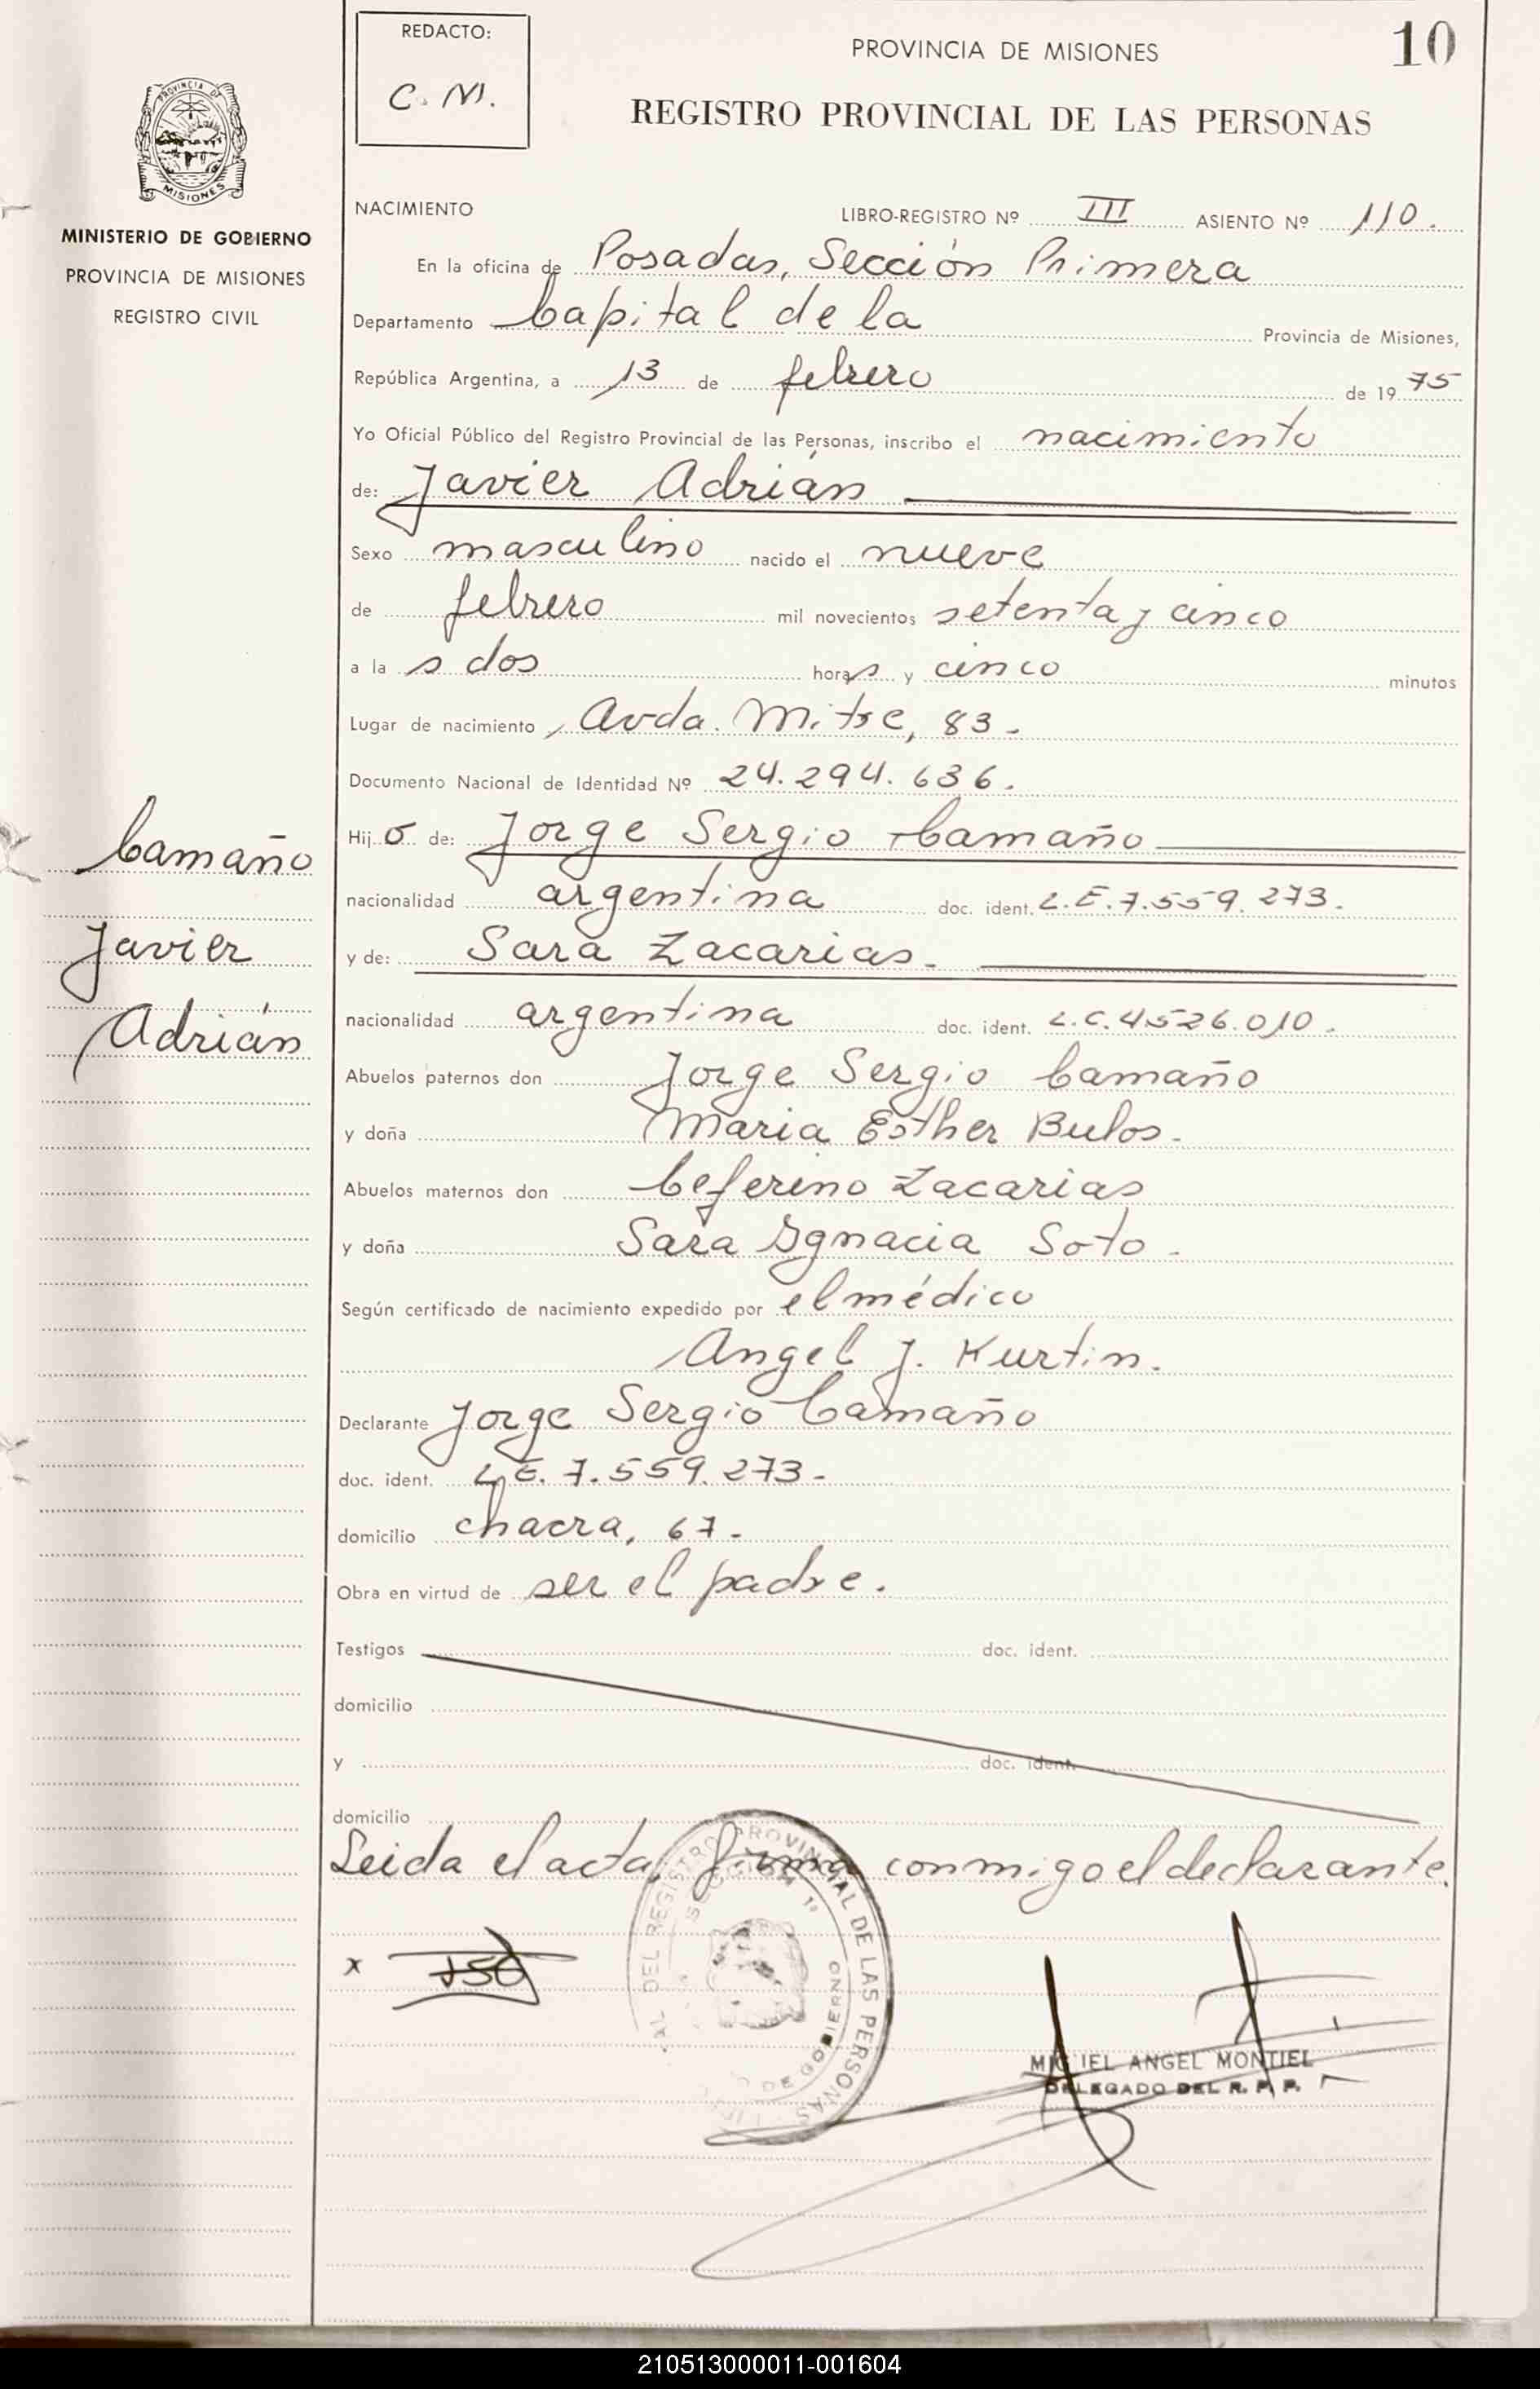 REDACTO:
C. M.
PROVINCIA DE MISIONES
10
REGISTRO PROVINCIAL DE LAS PERSONAS
MISIONES
MINISTERIO DE GOBIERNO
PROVINCIA DE MISIONES
REGISTRO CIVIL
NACIMIENTO LIBRO-REGISTRO Nº III ASIENTO Nº 110.
En la oficina de Posadas, Sección Primera
Departamento Capital de la Provincia de Misiones,
República Argentina, a 13 de febrero de 1975
Yo Oficial Público del Registro Provincial de las Personas, inscribo el nacimiento
de: Javier Adrián
Sexo masculino nacido el nueve
de febrero mil novecientos setenta y cinco
a la s dos horas y cinco minutos
Lugar de nacimiento Avda. Mitre, 83.
Documento Nacional de Identidad Nº 24.294.636.
Hijo de: Jorge Sergio Camaño
nacionalidad argentina doc. ident. L.E.7.559.273.
y de: Sara Zacarias.
nacionalidad argentina doc. ident. L.C.4526.010.
Abuelos paternos don Jorge Sergio Camaño
y doña Maria Esther Bulos.
Abuelos maternos don Ceferino Zacarias
y doña Sara Ygnacia Soto.
Según certificado de nacimiento expedido por el médico
Angel J. Kurtin.
Declarante Jorge Sergio Camaño
doc. ident. L.E. 7.559.273.
domicilio chacra, 67.
Obra en virtud de ser el padre.
Testigos doc. ident.
domicilio
y doc. ident.
domicilio
Leida el acta, firma conmigo el declarante.
x
DEL REGISTRO PROVINCIAL DE LAS PERSONAS
SECCION 1ª
DE GOBIERNO
MIGUEL ANGEL MONTIEL
DELEGADO DEL R. P. P.
Camaño
Javier
Adrián
210513000011-001604